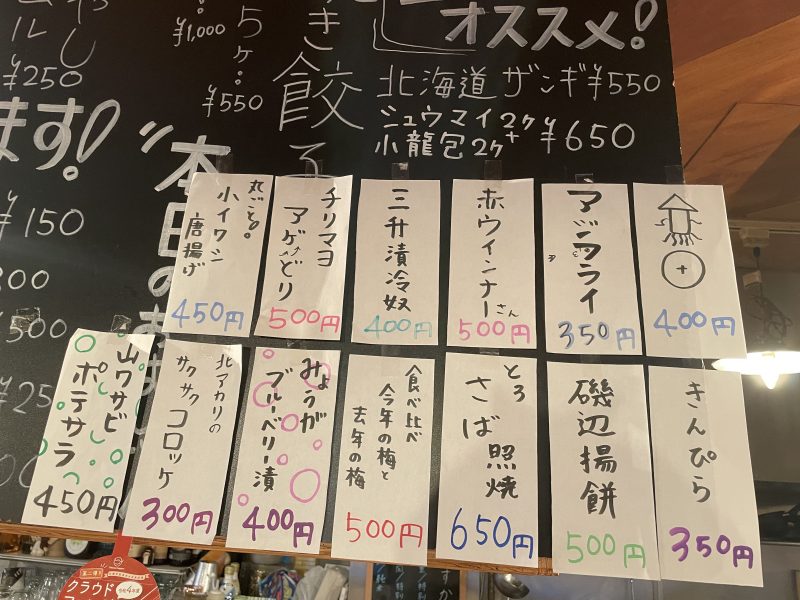 オススメ!
北海道 ザンギ ¥550
シュウマイ2ヶ
小龍包2ヶ ¥650
き餃子
5ヶ
¥550
¥1,000
ルし
¥250
ます!
"本日のお
¥150
丸ごと。
小イワシ
唐揚げ
450円
チリマヨ
アゲどり
500円
三升漬冷奴
400円
赤ウインナーさん
500円
アジフライ
350円
400円
山ワサビ
ポテサラ
450円
北アカリの
サクサク
コロッケ
300円
みょうが
ブルーベリー漬
400円
食べ比べ
今年の梅と
去年の梅
500円
とろ
さば照焼
650円
磯辺揚餅
500円
きんぴら
350円
クラウド